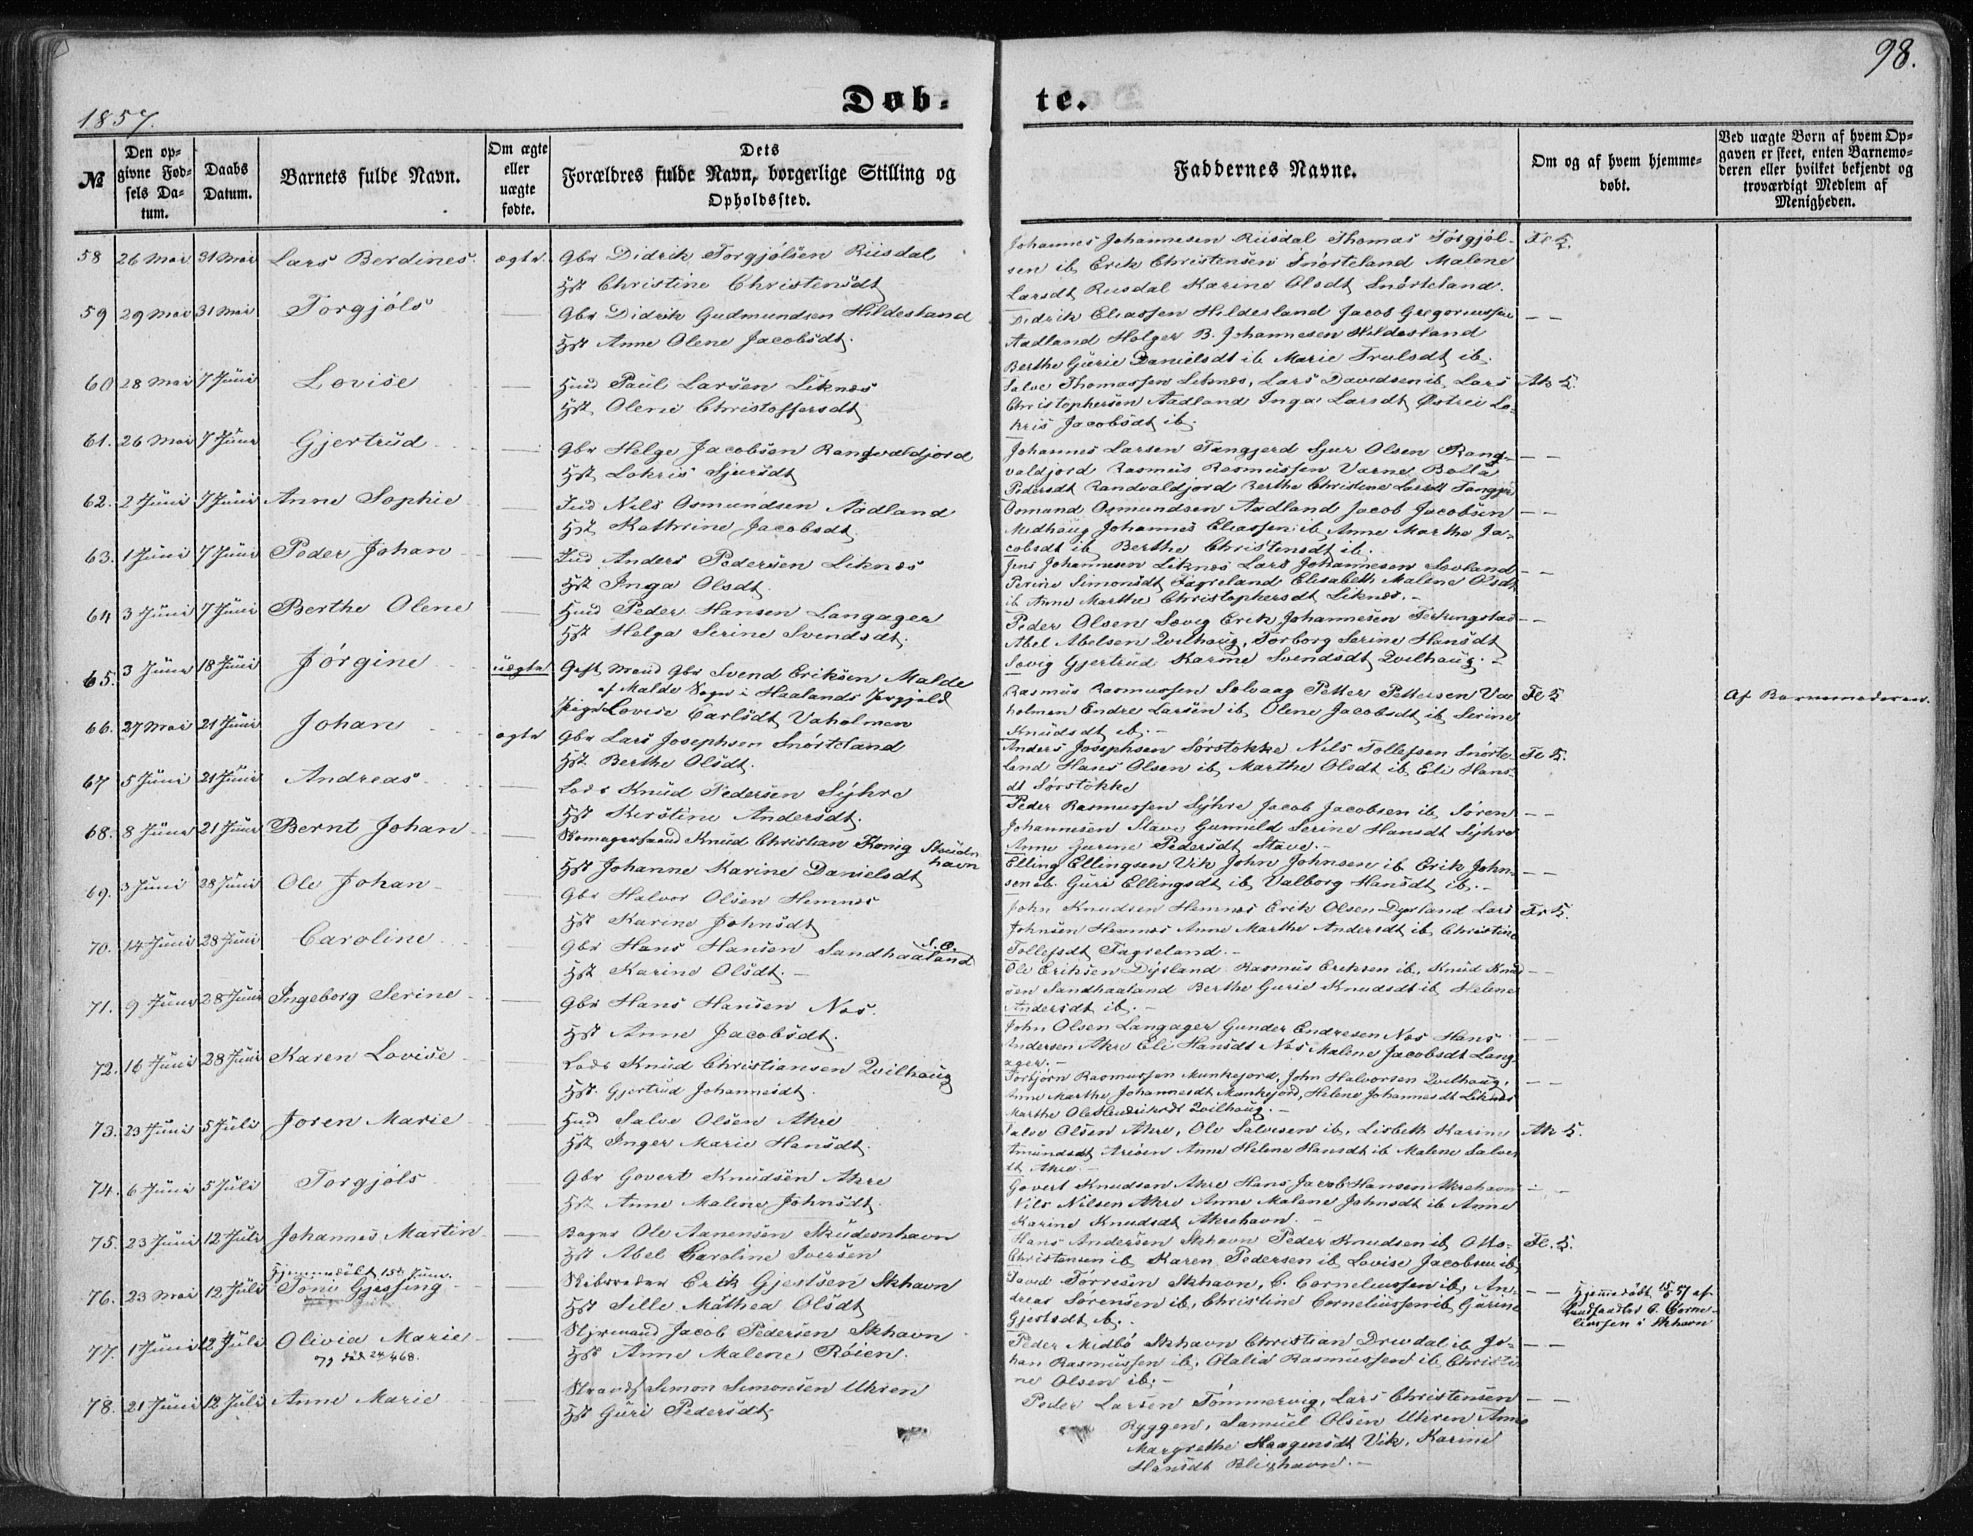 98.
1857.
Døb-
te.
№
Den opgivne Fødsels Datum.
Daabs Datum.
Barnets fulde Navn.
Om ægte eller uægte fødte.
Dets Forældres fulde Navn, borgerlige Stilling og Opholdssted.
Faddernes Navne.
Om og af hvem hjemmedøbt.
Ved uægte Børn af hvem Opgaven er skeet, enten Barnemoderen eller hvilket bekjendt og troværdigt Medlem af Menigheden.
58 26 Mai 31 Mai Lars Berdines ægte Gbr Didrik Torgjølsen Riisdal
Hst Christine Christensdt
Johannes Johannesen Riisdal Thomas Torgjøl-
sen ib, Erik Christensen Snørteland Malene
Larsdt Riisdal Karine Olsdt Snørteland.
59 29 Mai 31 Mai Torgjøls — Gbr Didrik Gudmundsen Hildesland
Hst Anne Olene Jacobsdt.
Didrik Eliassen Hildesland Jacob Gregoriussen — —
Aadland Holger B. Johannesen Hildesland
Berthe Gurie Danielsdt ib, Marie Trulsdt ib.
60 28 Mai 7 Juni Lovise — Huud Paul Larsen Liknes
Hst, Olene Christoffersdt
Salve Thomassen Liknes, Lars Davidsen ib, Lars
Christophersen Aadland Inga Larsdt Østrei Lo-
kris Jacobsdt ib.
61. 26 Mai 7 Juni Gjertrud — Gbr Helge Jacobsen Rangvaldjord
Hst, Lokris Sjursdt
Johannes Larsen Tangjerd Sjur Olsen Rang- — —
valdjord Rasmus Rasmussen Varne
Pedersdt Randvaldjord Berthe Christene Larsdt
62. 2 Juni 7 Juni Anne Sophie — Nils Osmundsen Aadland
Hst, Kathrine Jacobsdt
Osmund Osmundsen Aadland Jacob Jacobsen — —
Medhaug Johannes Eliassen ib, Anne Marthe Ja-
cobsdt ib Berthe Christensdt ib.
63. 1 Juni 7 Juni Peder Johan — Anders Pedersen Liknes
Hst Inga Olsdt.
Jens Johannesen Liknes Lars Johannesen Sovland — —
Perine Simonsdt Fagreland Elisabeth Malene Olsdt
ib Anne Marthe Christophersdt Liknes. —
64 3 Juni 7 Juni Berthe Olene — Huud Peder Hansen Langager
Hst Helga Serine Svendsdt.
Peder Olsen Søvig Erik Johannesen Ferkingstad — —
Abel Abelsen Qvilhaug, Torborg Serine Hansdt
Søvig Gjertrud Karine Svendsdt Qvilhaug. —
65. 3 Juni 18 Juni Jørgine uægte Gift Mand Gbr Svend Eriksen Malde
af Malde Sogn i Haalands
Pige Lovise Carlsdt Vaholmen
Rasmus Rasmussen Solvaag Petter Pettersen Va-
holmen Endre Larsen ib, Olene Jacobsdt ib Serine
Knudsdt ib. —
Af Barnemoderen.
66. 27 Mai 21 Juni Johan ægte Gbr Lars Josephsen Snørteland
Hst Berthe Olsdt.
Anders Josephsen Sørstokke Nils Tollefsen Snørte-
land Hans Olsen ib, Marthe Olsdt ib, Eli Hans-
dt Sørstokke
67 5 Juni 21 Juni Andreas — Lods Knud Pedersen Syhre
Hst Kirstine Andersdt.
Peder Rasmussen Syhre Jacob Jacobsen ib, Søren — —
Johannesen Stave Gunnild Serine Hansdt Syhre
Anne Gurine Pedersdt Stave. —
68. 8 Juni 21 Juni Bernt Johan — Skomagersvend Knud Christian König Skudes-
havn
Hst Johanne Karine Danielsdt
Elling Ellingsen Vik John Johnsen ib Erik John- — —
sen ib. Guri Ellingsdt ib, Valborg Hansdt ib. —
69. 3 Juni 28 Juni Ole Johan — Gbr Halvor Olsen Hemnes
Hst Karine Johnsdt
John Knudsen Hemnes Erik Olsen Dyrland Lars
Johnsen Hemnes Anne Marthe Andersdt ib, Christine
Tollefsdt Fagreland. —
70. 14 Juni 28 Juni Caroline — Gbr Hans Hansen Sandhaaland
Hst Karine Olsdt. —
Ole Eriksen Dyrland Rasmus Eriksen ib, Knud Knud- — —
sen Sandhaaland Berthe Gurie Knudsdt ib Helene
Andersdt ib. —
71. 9 Juni 28 Juni Ingeborg Serine — Gbr Hans Hansen Nes.
Hst Anne Jacobsdt.
John Olsen Langager Gunder Endresen Nes Hans — —
Andersen Akre Eli Hansdt Nes Malene Jacobsdt Lang-
ager. —
72. 16 Juni 28 Juni Karen Lovise — Lods Knud Christiansen Qvilhaug
Hst. Gjertrud Johannesdt.
Torbjørn Rasmussen Munkejord, John Halvorsen Qvilhaug, — —
Anne Marthe Johannesdt Munkejord, Helene Johannesdt Liknes
Marthe Ole Hendriksdt Qvilhaug. —
73. 23 Juni 5 Juli Joren Marie — Huud Salve Olsen Akre
Hst Inger Marie Hansdt.
Salve Olsen Akre, Ole Salvesen ib, Lisbeth Karine
Amundsdt Anne Helene Hansdt ib Malene Salves
dt Akre. —
74. 6 Juni 5 Juli Torgjøls — Gbr Govert Knudsen Akre
Hst Anne Malene Johnsdt.
Govert Knudsen Akre Hans Jacob Hansen Akrehavn — —
Nils Nilsen Akre Anne Malene Johnsdt ib Anne
Karine Knudsdt Akrehavn. —
75. 23 Juni 12 Juli Johannes Martin — Bager Ole Aanensen Skudesnhavn
Hst Abel Caroline Iversen
Hans Andersen Skhavn Peder Knudsen ib Otto
Christensen ib, Karen Pedersen ib, Lovise Jacobsen ib,
76. 23 Mai 12 Juli Hjemmedøbt 15de Juni.
Tønes Gjessing — Skibsreder Erik Gjestsen Skhavn
Hst Sille Mathea Olsdt
David Tørresen Skhavn, C. Corneliussen ib, An- — —
dreas Sørensen ib, Christine Corneliussen ib Gurine
Gjestsdt ib. —
Hjemmedøbt 15/6 57 af
C. Corne-
liussen i Skhavn
77. 1 Juni 12 Juli Olivia Marie — Styrmand Jacob Pedersen Skhavn
Hst Anne Malene Røien.
Peder Midbø Skhavn Christian Drevdal ib, Jo- — —
han Rasmussen ib, Otalia Rasmussen ib, Christi-
ne Olsen ib. —
78. 21 Juni 12 Juli Anne Marie — Simon Simonsen Uhren
Hst Guri Pedersdt.
Peder Larsen Tømmervig, Lars Christensen — —
Ryggen, Samuel Olsen Uhren Anne
Margrethe Haagensdt Vik, Karine
Hansdt havn. —